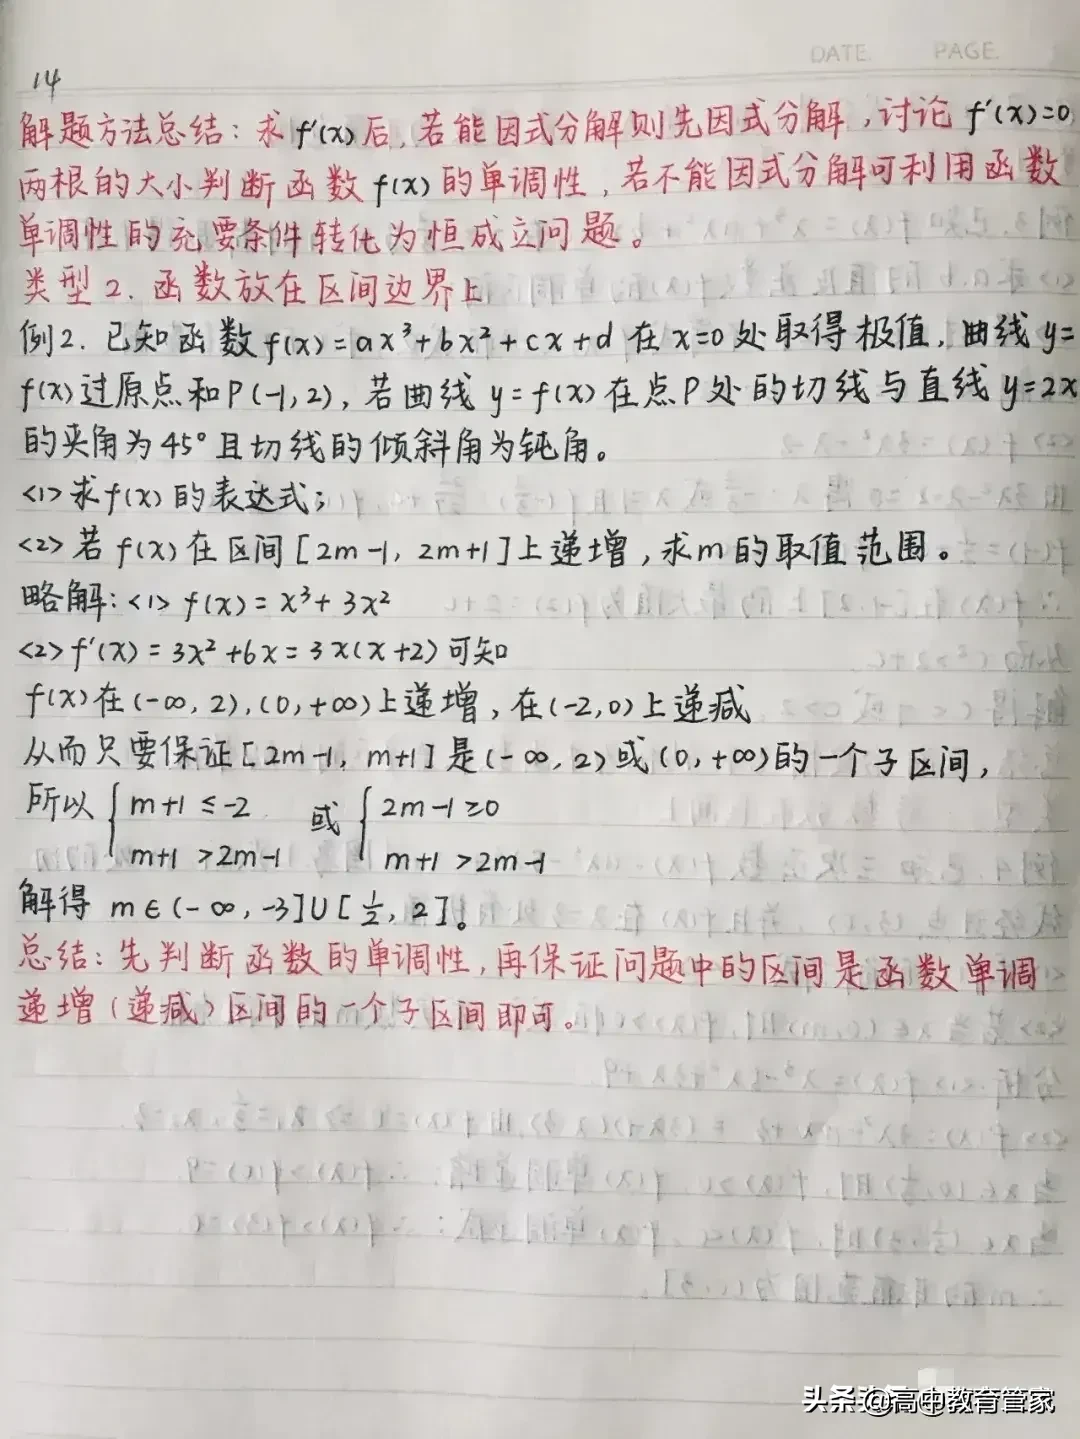 DATE PAGE
14
解题方法总结：求f'(x)后，若能因式分解则先因式分解，讨论f'(x)=0
两根的大小判断函数f(x)的单调性，若不能因式分解可利用函数
单调性的充要条件转化为恒成立问题。
类型2. 函数放在区间边界上
例2. 已知函数f(x)=ax³+bx²+cx+d在x=0处取得极值，曲线y=
f(x)过原点和P(-1,2)，若曲线y=f(x)在点P处的切线与直线y=2x
的夹角为45°且切线的倾斜角为钝角。
<1>求f(x)的表达式；
<2>若f(x)在区间[2m-1, 2m+1]上递增，求m的取值范围。
略解：<1> f(x)=x³+3x²
<2> f'(x)=3x²+6x=3x(x+2)可知
f(x)在(-∞, 2),(0,+∞)上递增，在(-2,0)上递减
从而只要保证[2m-1, m+1]是(-∞,2)或(0,+∞)的一个子区间，
所以 { m+1≤-2 或 { 2m-1≥0
m+1>2m-1 m+1>2m-1
解得 m∈(-∞,-3]∪[½, 2]。
总结：先判断函数的单调性，再保证问题中的区间是函数单调
递增（递减）区间的一个子区间即可。
@高中教育管家